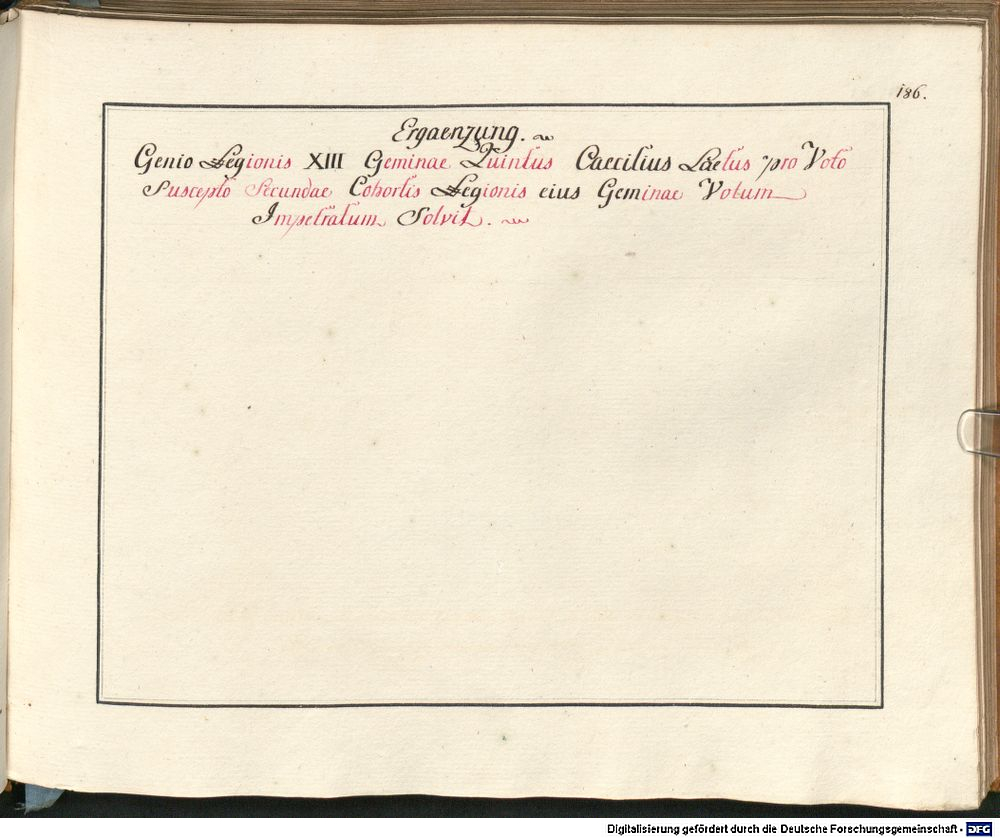 186.
Ergaenzung.
Genio Legionis XIII Geminae Quintus Caecilius Laetus pro Voto
Suscepto Secundae Cohortis Legionis eius Geminae Votum
Impetratum Solvit.
Digitalisierung gefördert durch die Deutsche Forschungsgemeinschaft - DFG